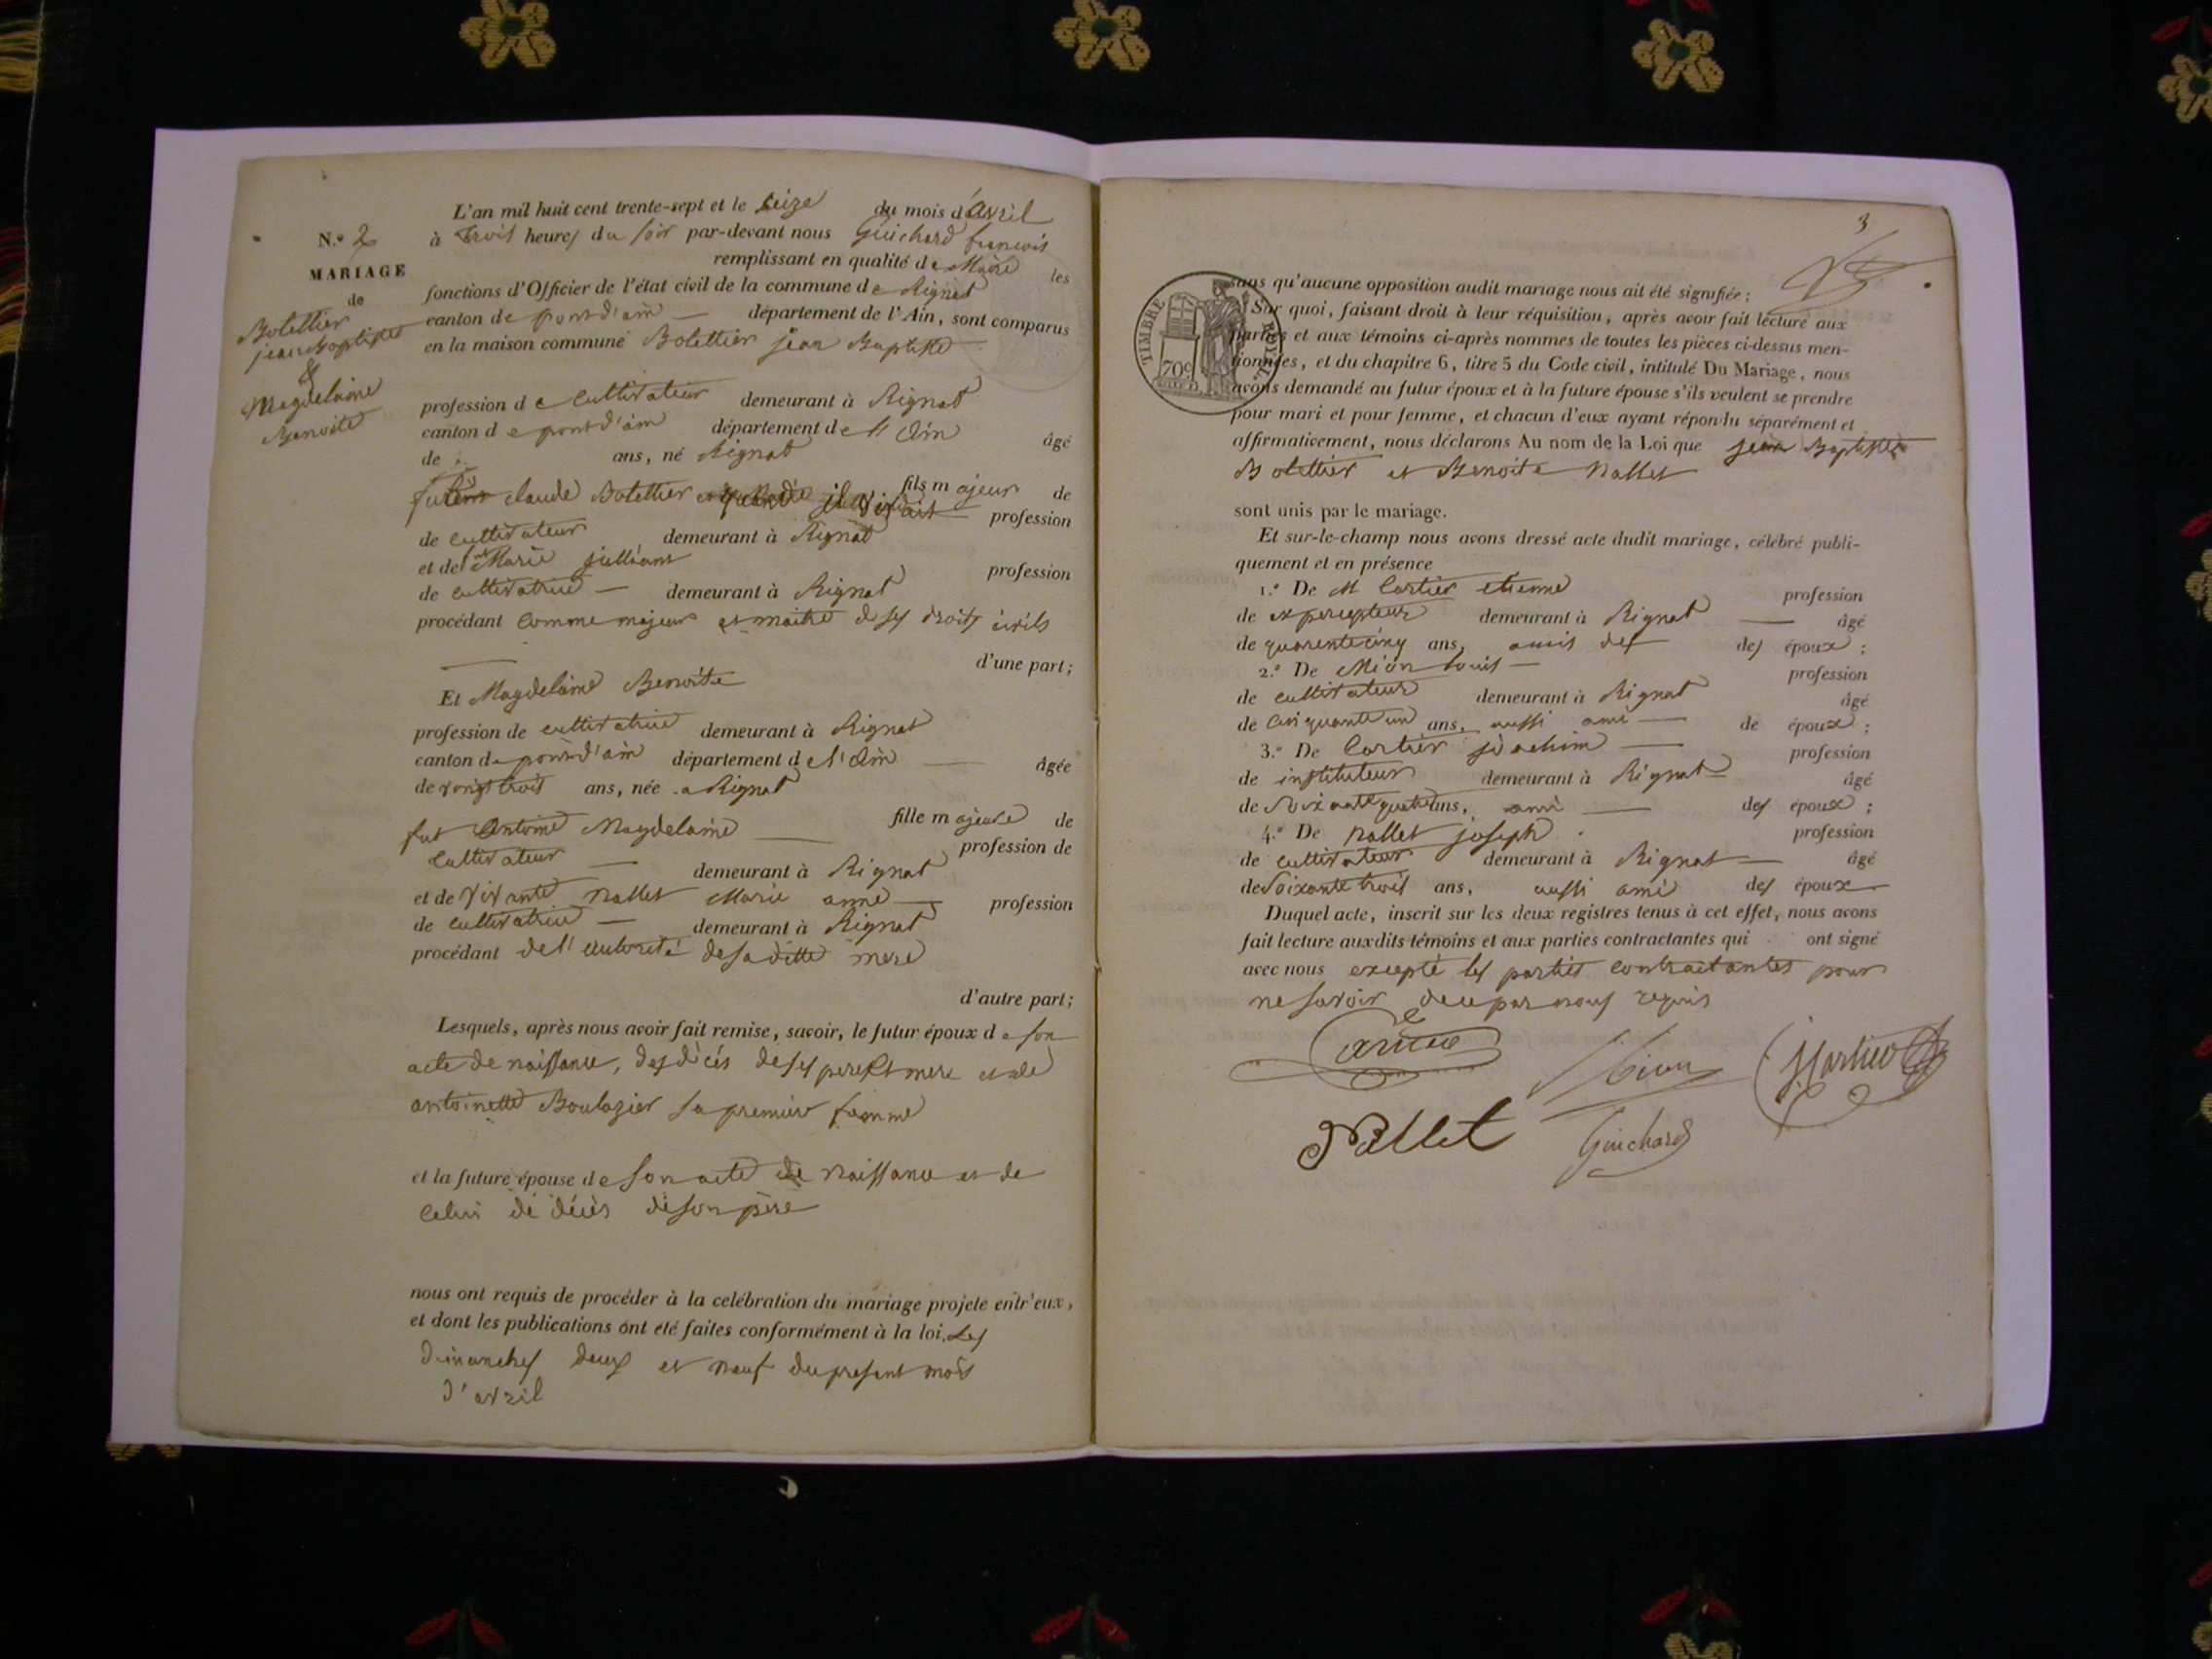 N.º 2
MARIAGE
de
Bolettier
jean Baptiste
&
Magdelaine
Benoite
L'an mil huit cent trente-sept et le seize du mois d'avril
à trois heures du soir par-devant nous Guichard francois
remplissant en qualité de Maire les
fonctions d'Officier de l'état civil de la commune de Rignat
canton de pont d'ain département de l'Ain, sont comparus
en la maison commune Bolettier jean Baptiste
profession de cultivateur demeurant à Rignat
canton de pont d'ain département de l'ain âgé
de ans, né Rignat
fils majeur de
claude Bolettier profession
de cultivateur demeurant à Rignat
et de Marie jullians profession
de cultivatrice demeurant à Rignat
procédant comme majeur et maitre de ses droits civils
d'une part;
Et Magdelaine Benoite
profession de cultivatrice demeurant à Rignat
canton de pont d'ain département de l'ain âgée
de vingt trois ans, née a Rignat
fille majeure de
fut Antoine Magdelaine profession de
cultivateur demeurant à Rignat
et de vivante Nallet Marie anne profession
de cultivatrice demeurant à Rignat
procédant de l'autorité de sa ditte mere
d'autre part;
Lesquels, après nous avoir fait remise, savoir, le futur époux de son
acte de naissance, des décés de ses pere et mere et de
antoinette Boulozier sa premiere femme
et la future épouse de son acte de naissance et de
celui de décès de son père
nous ont requis de procéder à la celébration du mariage projeté entr'eux,
et dont les publications ont été faites conformément à la loi, Les
dimanches deux et neuf du present mois
d'avril
3
TIMBRE ROYAL
70c
sans qu'aucune opposition audit mariage nous ait été signifiée;
Sur quoi, faisant droit à leur réquisition, après avoir fait lecture aux
parties et aux témoins ci-après nommes de toutes les pièces ci-dessus men-
tionnées, et du chapitre 6, titre 5 du Code civil, intitulé Du Mariage, nous
avons demandé au futur époux et à la future épouse s'ils veulent se prendre
pour mari et pour femme, et chacun d'eux ayant répondu séparément et
affirmativement, nous déclarons Au nom de la Loi que jean Baptiste
Bolettier et Benoite Nallet
sont unis par le mariage.
Et sur-le-champ nous avons dressé acte dudit mariage, célébré publi-
quement et en présence
1.º De M Cartier etienne profession
de expercepteur demeurant à Rignat âgé
de quarente cinq ans, amis des des époux;
2.º De Mion Louis profession
de cultivateur demeurant à Rignat âgé
de cinquante un ans, aussi ami de époux;
3.º De Cartier joachim profession
de instituteur demeurant à Rignat âgé
de soixante quatre ans, ami des époux;
4.º De Nallet joseph profession
de cultivateur demeurant à Rignat âgé
de soixante trois ans, aussi ami des époux
Duquel acte, inscrit sur les deux registres tenus à cet effet, nous avons
fait lecture auxdits témoins et aux parties contractantes qui ont signé
avec nous excepté les parties contractantes pour
ne savoir de ce par nous requis
Cartier Mion J Cartier
Nallet Guichard